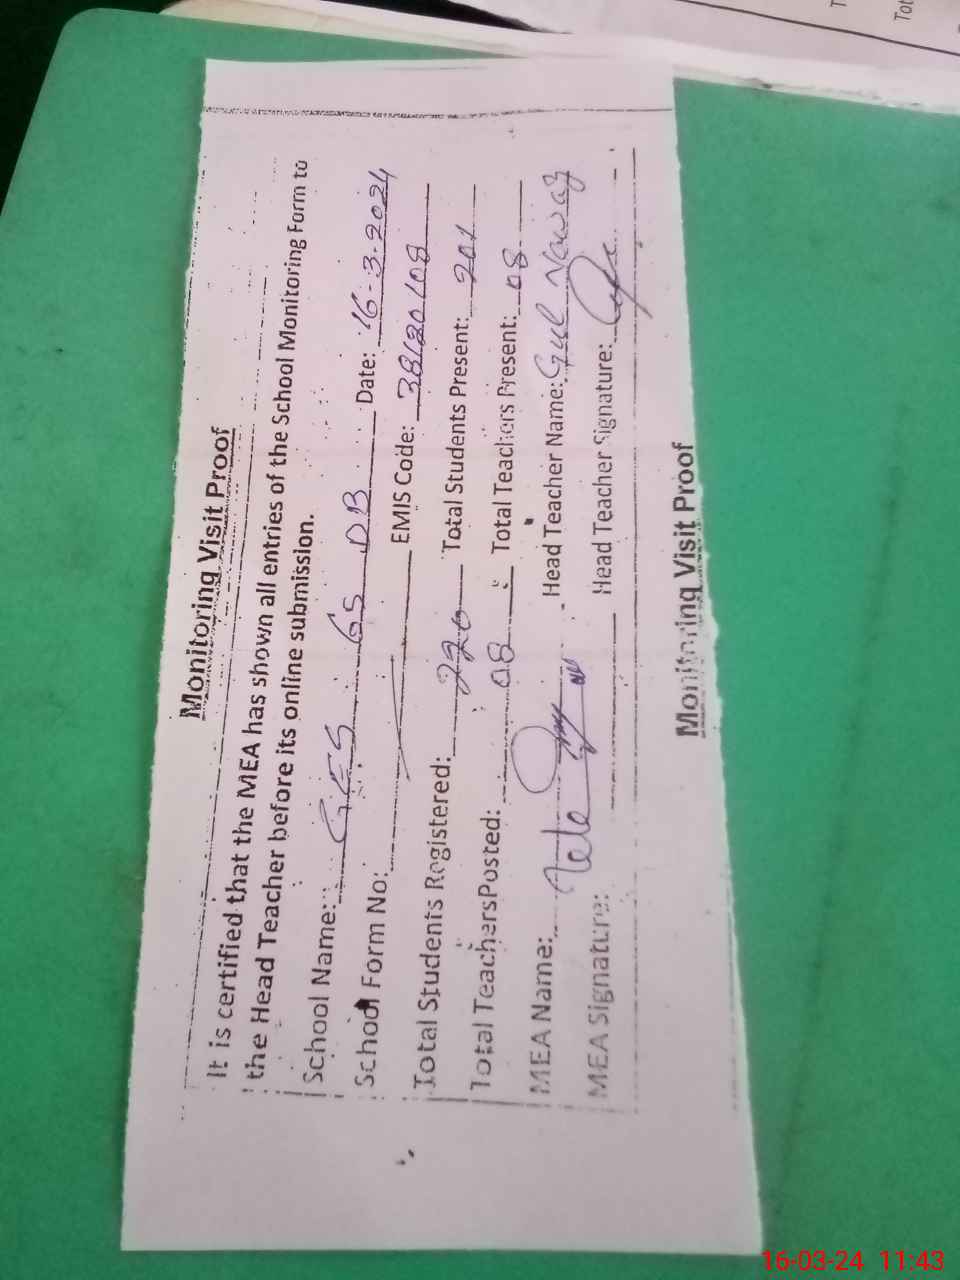 Monitoring Visit Proof
It is certified that the MEA has shown all entries of the School Monitoring Form to
the Head Teacher before its online submission.
School Name: GES GS DB Date: 16-3-2024
School Form No: EMIS Code: 38120108
Total Students Registered: 220 Total Students Present: 201
Total TeachersPosted: 08 Total Teachers Present: 08
MEA Name: Head Teacher Name: Gul Nawaz
MEA Signature: Head Teacher Signature:
Monitoring Visit Proof
16-03-24 11:43